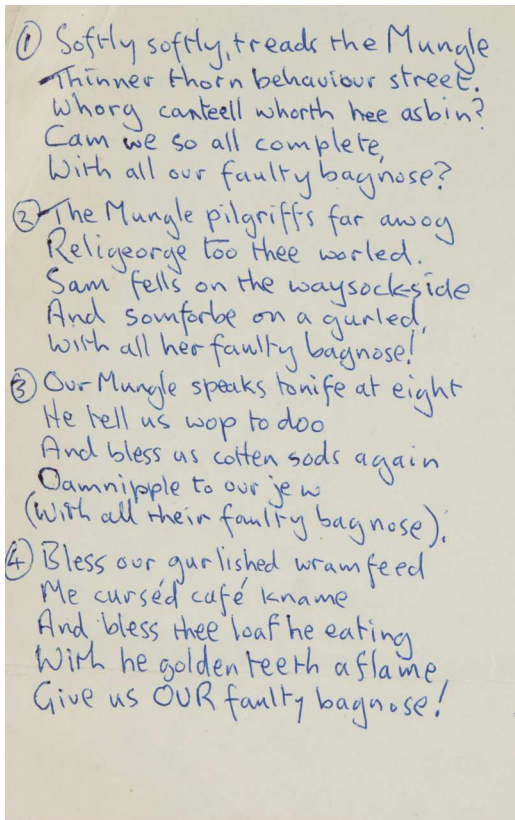 ① Softly softly, treads the Mungle
Thinner thorn behaviour street.
Whorg canteell whorth hee asbin?
Cam we so all complete,
With all our faulty bagnose?
② The Mungle pilgriffs far awog
Religeorge too thee worled.
Sam fells on the waysockside
And somforbe on a gurled,
With all her faulty bagnose!
③ Our Mungle speaks tonife at eight
He tell us wop to doo
And bless us cotten sods again
Oamnipple to our jew
(With all their faulty bagnose).
④ Bless our gurlished wramfeed
Me curséd café kname
And bless thee loaf he eating
With he golden teeth aflame
Give us OUR faulty bagnose!